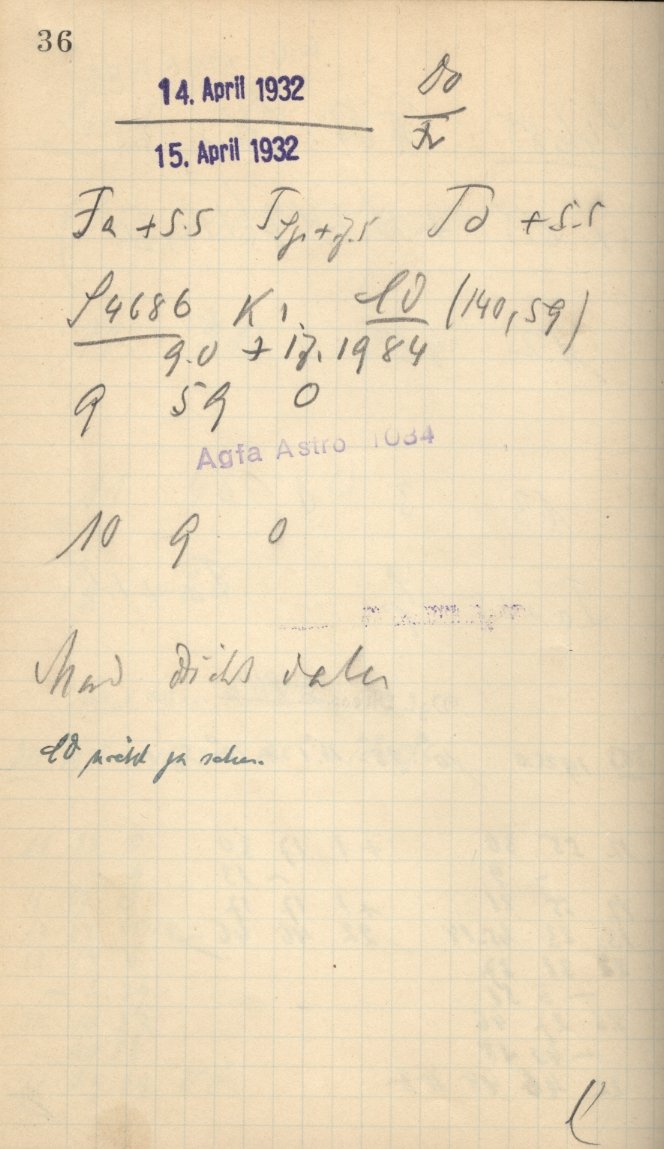 36
14. April 1932 Do
15. April 1932 Fr
Ta +5.5 TSp +7.5 Td +5.5
P4686 K1. (140,59)
9.0 +17.1984
9 59 0
Agfa Astro 1034
10 9 0
Mond dicht dabei
nicht zu sehen.